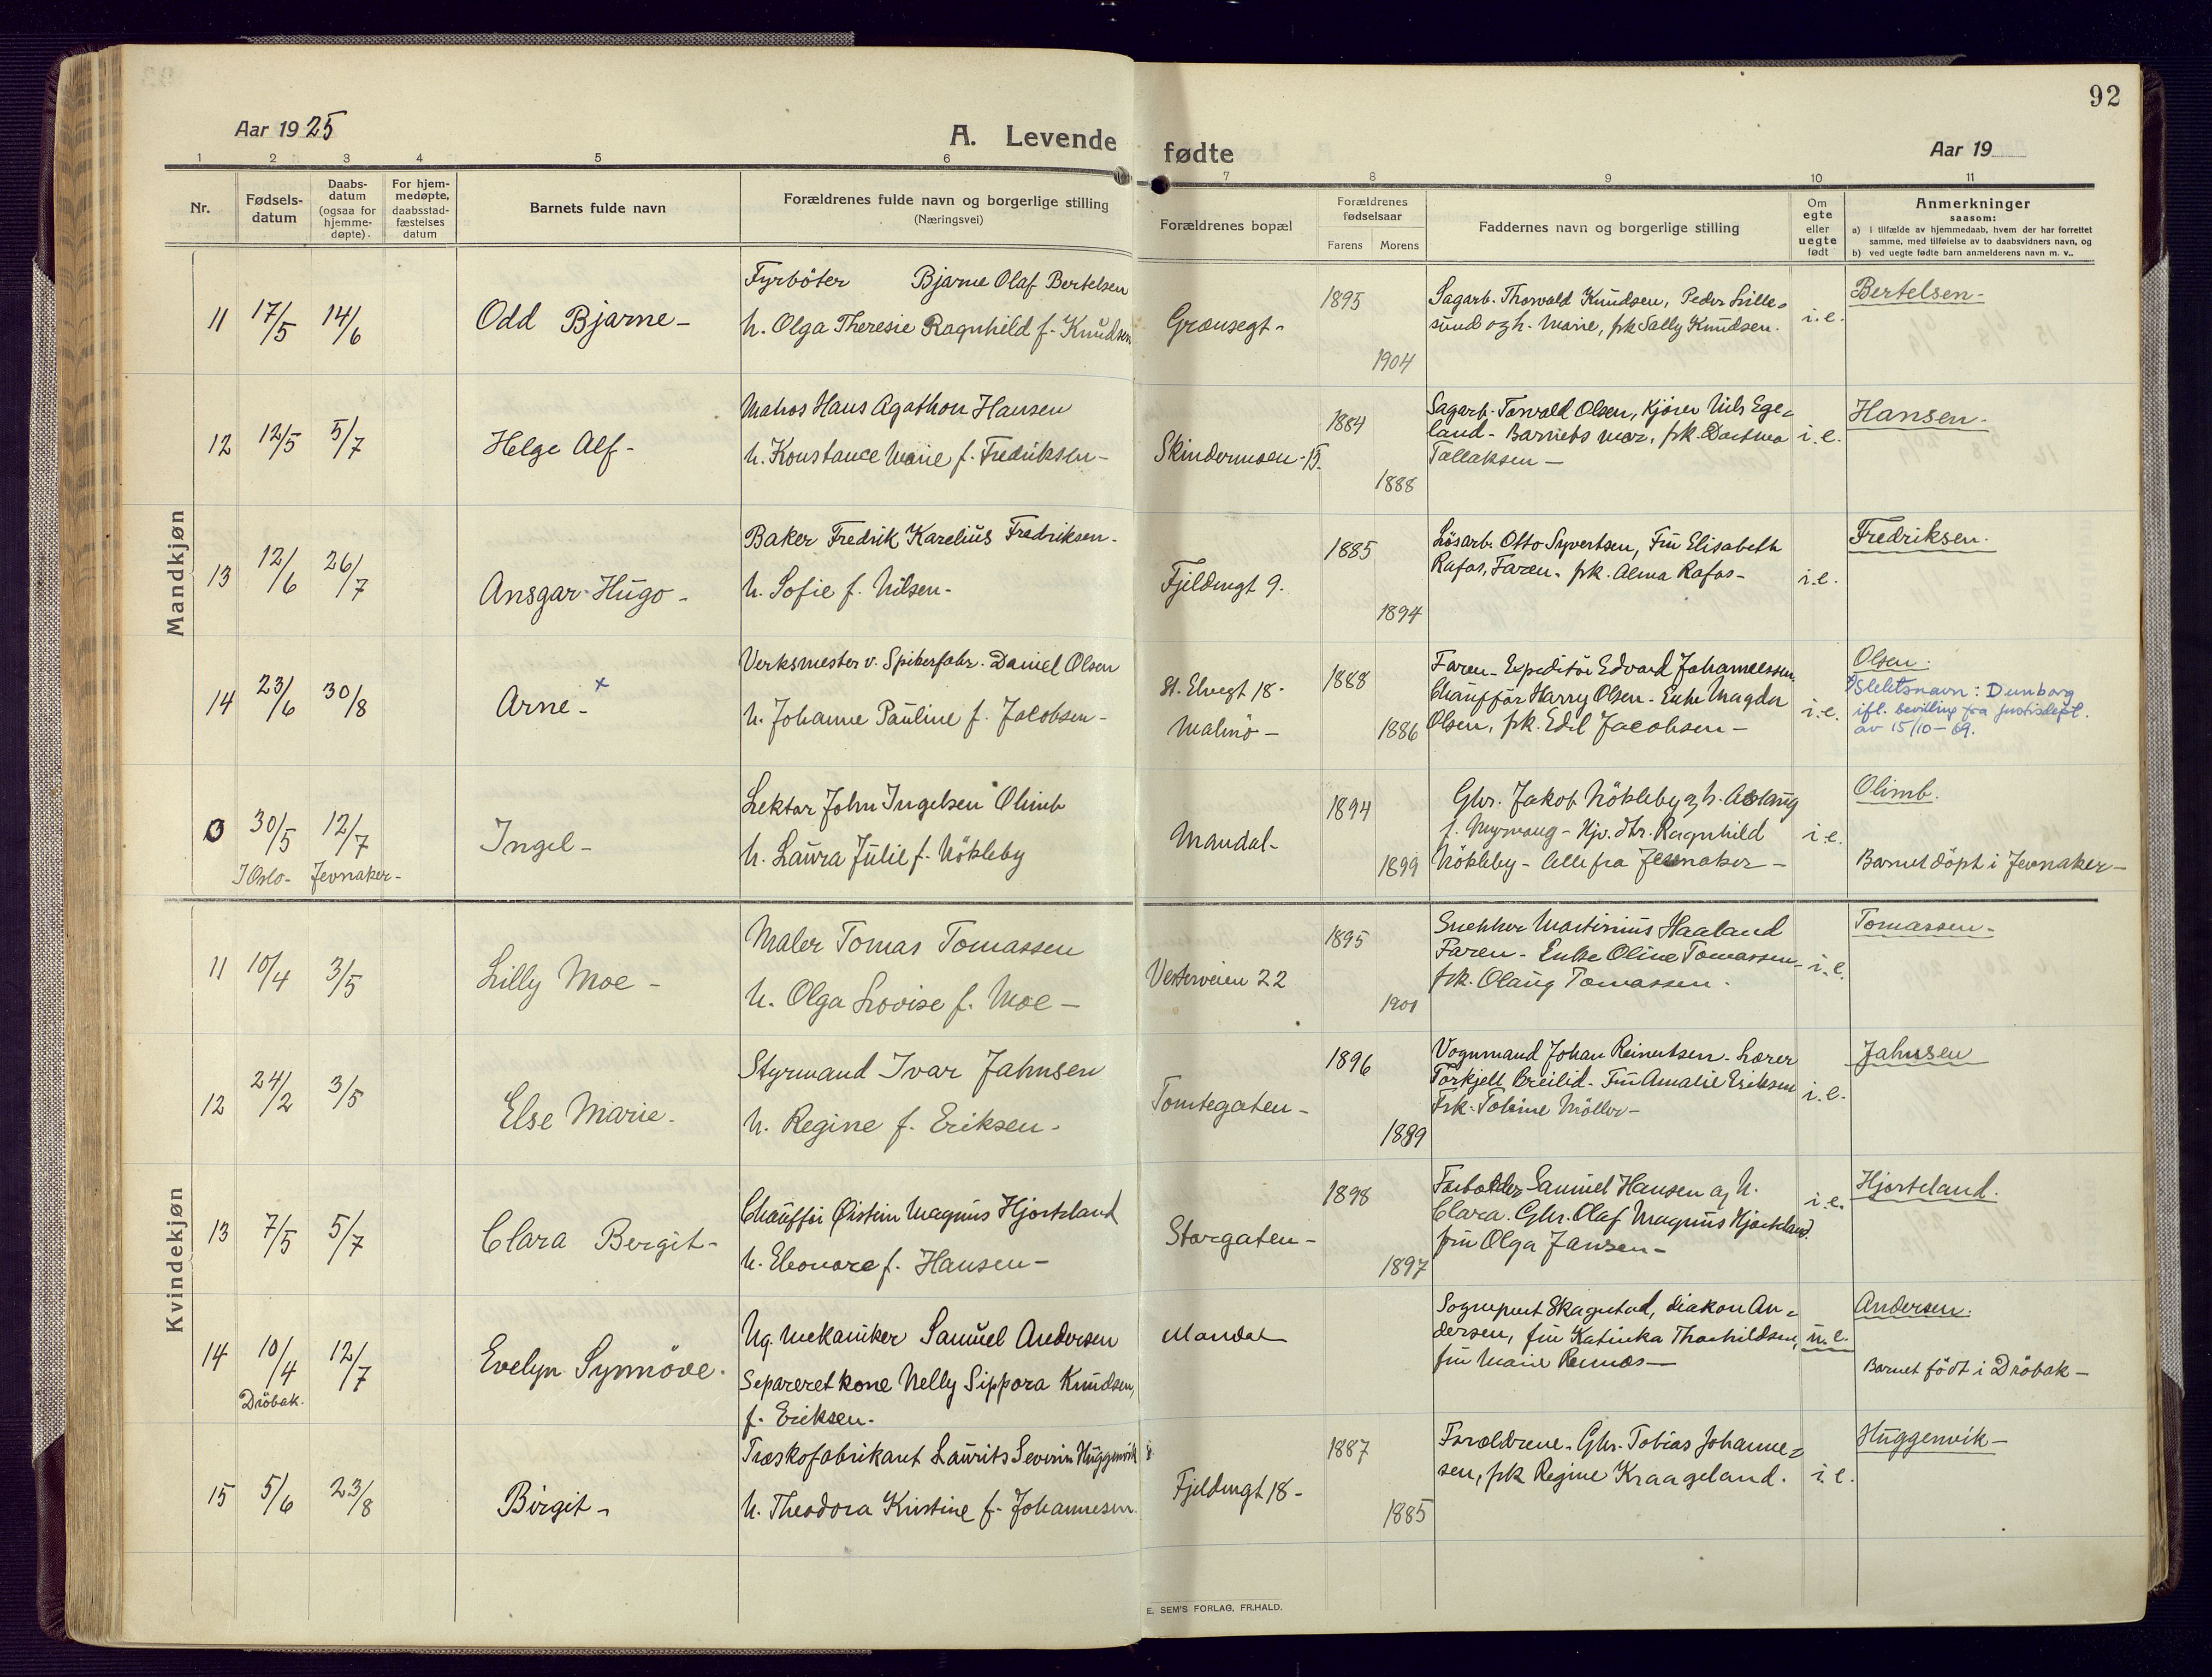 92
Aar 1925
A. Levende fødte
Aar 19
1 2 3 4 5 6 7 8 9 10 11
Nr.
Fødsels-
datum
Daabs-
datum
(ogsaa for
hjemme-
døpte).
For hjem-
medøpte,
daabsstad-
fæstelses
datum
Barnets fulde navn
Forældrenes fulde navn og borgerlige stilling
(Næringsvei)
Forældrenes bopæl
Forældrenes
fødselsaar
Farens Morens
Faddernes navn og borgerlige stilling
Om
egte
eller
uegte
født
Anmerkninger
saasom:
a) i tilfælde av hjemmedaab, hvem der har forrettet
samme, med tilføielse av to daabsvidners navn, og
b) ved uegte fødte barn anmelderens navn m. v..
Mandkjøn
11 17/5 14/6 Odd Bjarne-
Fyrböter Bjarne Olaf Bertelsen
h. Olga Theresie Ragnhild f. Knudsen
Grænsegt-
1895
1904
Sagarb. Thorvald Knudsen, Peder Lille-
sund og h. Marie, frk Sally Knudsen.
i.e.
Bertelsen-
12 12/5 5/7 Helge Alf-
Matros Hans Agathon Hansen
h. Konstance Marie f. Fredriksen-
Skindermoen 15.
1884
1888
Sagarb. Torvald Olsen, Kjører Nils Ege-
land- Barnets mor, frk. Dortma
Tallaksen-
i.e.
Hansen-
13 12/6 26/7 Ansgar Hugo-
Baker Fredrik Karelius Fredriksen.
h. Sofie f. Nilsen-
Fjeldengt 9.
1885
1894
Lösarb. Otto Syvertsen, Fru Elisabeth
Rafos, Faren- frk. Alma Rafos-
i.e.
Fredriksen.
14 23/6 30/8 Arne- x
Verksmester v. Spikerfabr. Daniel Olsen
h. Johanne Pauline f. Jacobsen-
St. Elvegt 18-
Malmö-
1888
1886
Faren- Expeditör Edvard Johannessen.
Chaufför Harry Olsen- Enke Magda
Olsen, frk. Edel Jacobsen-
i.e.
Olsen.
Slektsnavn: Dunborg
ifl. bevilling fra Justisdept.
av 15/10-69.
0 30/5 12/7 Ingel-
I Oslo- Jevnaker-
Lektor John Ingelsen Olimb
h. Laura Julie f. Nökleby
Mandal-
1894
1899
Gbr. Jakob Nökleby og h. Aslaug
f. Myrvang- Hjv. dtr. Ragnhild
Nökleby- Alle fra Jevnaker-
i.e.
Olimb.
Barnet döpt i Jevnaker-
Kvindekjøn
11 10/4 3/5 Lilly Moe-
Maler Tomas Tomassen
h. Olga Lovise f. Moe-
Vesterveien 22
1895
1901
Snekker Martinius Haaland
Faren- Enke Oline Tomassen-
frk. Olaug Tomassen.
i.e.
Tomassen-
12 24/2 3/5 Else Marie.
Styrmand Ivar Jahnsen
h. Regine f. Eriksen-
Tomtegaten-
1896
1899
Vognmand Johan Reinertsen- Lærer
Torkjell Breilid- Fru Amalie Eriksen
Frk. Tobine Möller-
i.e.
Jahnsen
13 7/5 5/7 Clara Bergit-
Chaufför Øistein Magnus Hjorteland
h. Eleonore f. Hansen-
Storgaten-
1898
1897
Forbolder Samuel Hansen og h.
Clara. Gbr. Olaf Magnus Hjorteland.
fru Olga Jansen-
i.e.
Hjorteland.
14 10/4 12/7 Evelyn Synnöve.
Dröbak.
Ug. mekaniker Samuel Andersen
Separeret kone Nelly Sippora Knudsen,
f. Eriksen-
Mandal
Sogneprest Skagestad, diakon An-
dersen, fru Katinka Thorkildsen,
fru Marie Rennes-
u.e.
Andersen.
Barnet födt i Dröbak-
15 5/6 23/8 Birgit-
Træskofabrikant Laurits Severin Huggenvik
h. Theodora Kristine f. Johannesen
Fjeldengt 18-
1887
1885
Forældrene- Gbr. Tobias Johanne-
sen, frk Regine Kraageland.
i.e.
Huggenvik-
E. SEM'S FORLAG, FR.HALD.